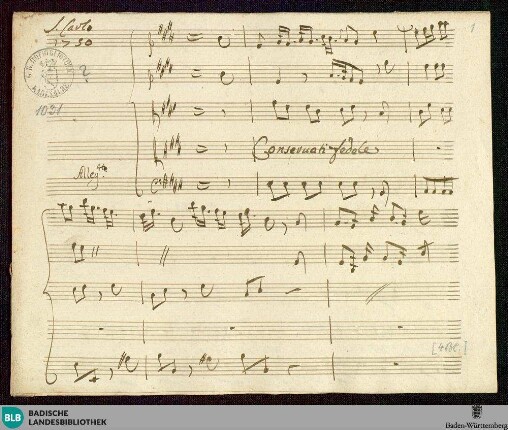 S. Carlo
1750
1
?
1021
Conservati fedele
Alleg.
[4 Bl.]
BLB BADISCHE
LANDESBIBLIOTHEK
Baden-Württemberg